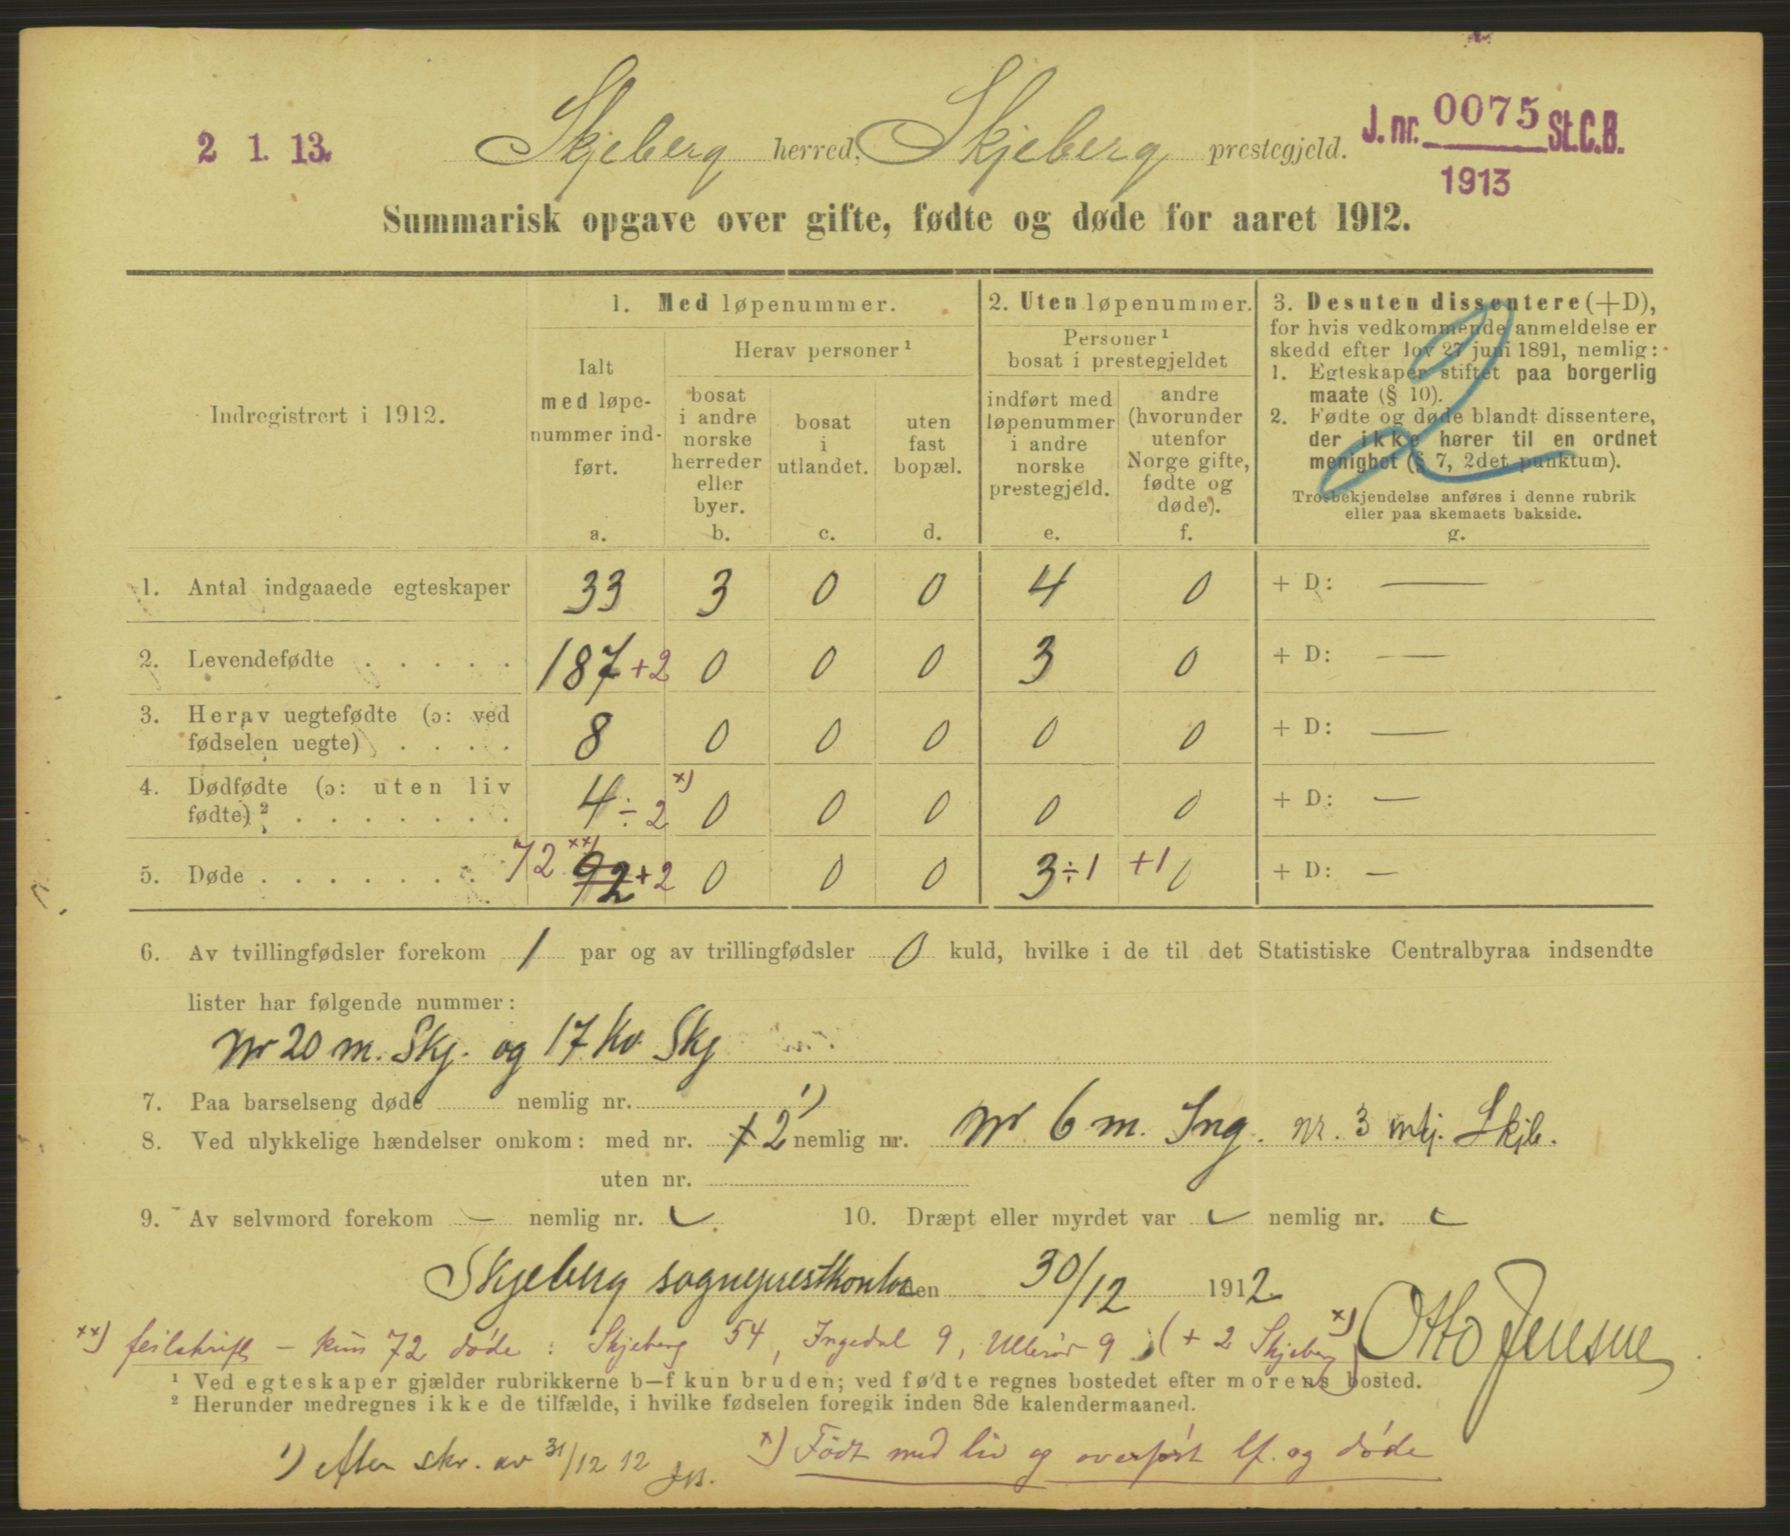 2 1. 13.
Skjeberg herred, Skjeberg prestegjeld.
J. nr. 0075 St.C.B.
1913
Summarisk opgave over gifte, fødte og døde for aaret 1912.
Indregistrert i 1912.
1. Med løpenummer.
Ialt
med løpe-
nummer ind-
ført.
a.
Herav personer ¹
bosat
i andre
norske
herreder
eller
byer.
b.
bosat
i
utlandet.
c.
uten
fast
bopæl.
d.
2. Uten løpenummer.
Personer ¹
bosat i prestegjeldet
indført med
løpenummer
i andre
norske
prestegjeld.
e.
andre
(hvorunder
utenfor
Norge gifte,
fødte og
døde).
f.
3. Desuten dissentere (+D),
for hvis vedkommende anmeldelse er
skedd efter lov 27 juni 1891, nemlig:
1. Egteskaper stiftet paa borgerlig
maate (§ 10).
2. Fødte og døde blandt dissentere,
der ikke hører til en ordnet
menighet (§ 7, 2det punktum).
Trosbekjendelse anføres i denne rubrik
eller paa skemaets bakside.
g.
1. Antal indgaaede egteskaper 33 3 0 0 4 0 + D: —
2. Levendefødte . . . . . 187 +2 0 0 0 3 0 + D: —
3. Herav uegtefødte (ɔ: ved
fødselen uegte) . . . . 8 0 0 0 0 0 + D: —
4. Dødfødte (ɔ: uten liv
fødte) ² . . . . . . . 4 ÷ 2 x) 0 0 0 0 0 + D: —
5. Døde . . . . . . . 72 xx) 92 +2 0 0 0 3 ÷1 +1 0 + D: —
6. Av tvillingfødsler forekom 1 par og av trillingfødsler 0 kuld, hvilke i de til det Statistiske Centralbyraa indsendte
lister har følgende nummer:
Nr 20 m. Skj. og 17 Kv Skj
7. Paa barselseng døde nemlig nr.
8. Ved ulykkelige hændelser omkom: med nr. 1 2 1) nemlig nr. Nr 6 m. Ing. nr. 3 mkj. Skjb.
uten nr.
9. Av selvmord forekom — nemlig nr. 10. Dræpt eller myrdet var nemlig nr.
Skjeberg sogneprestkontor den 30/12 1912
x) Otto Jensen
xx) feilskrift — kun 72 døde : Skjeberg 54, Ingedal 9, Ullerøi 9 (+ 2 Skjeberg)
¹ Ved egteskaper gjælder rubrikkerne b—f kun bruden; ved fødte regnes bostedet efter morens bosted.
² Herunder medregnes ikke de tilfælde, i hvilke fødselen foregik inden 8de kalendermaaned.
1) efter skr. av 31/12 12
x) Født med liv og overført lf. og døde